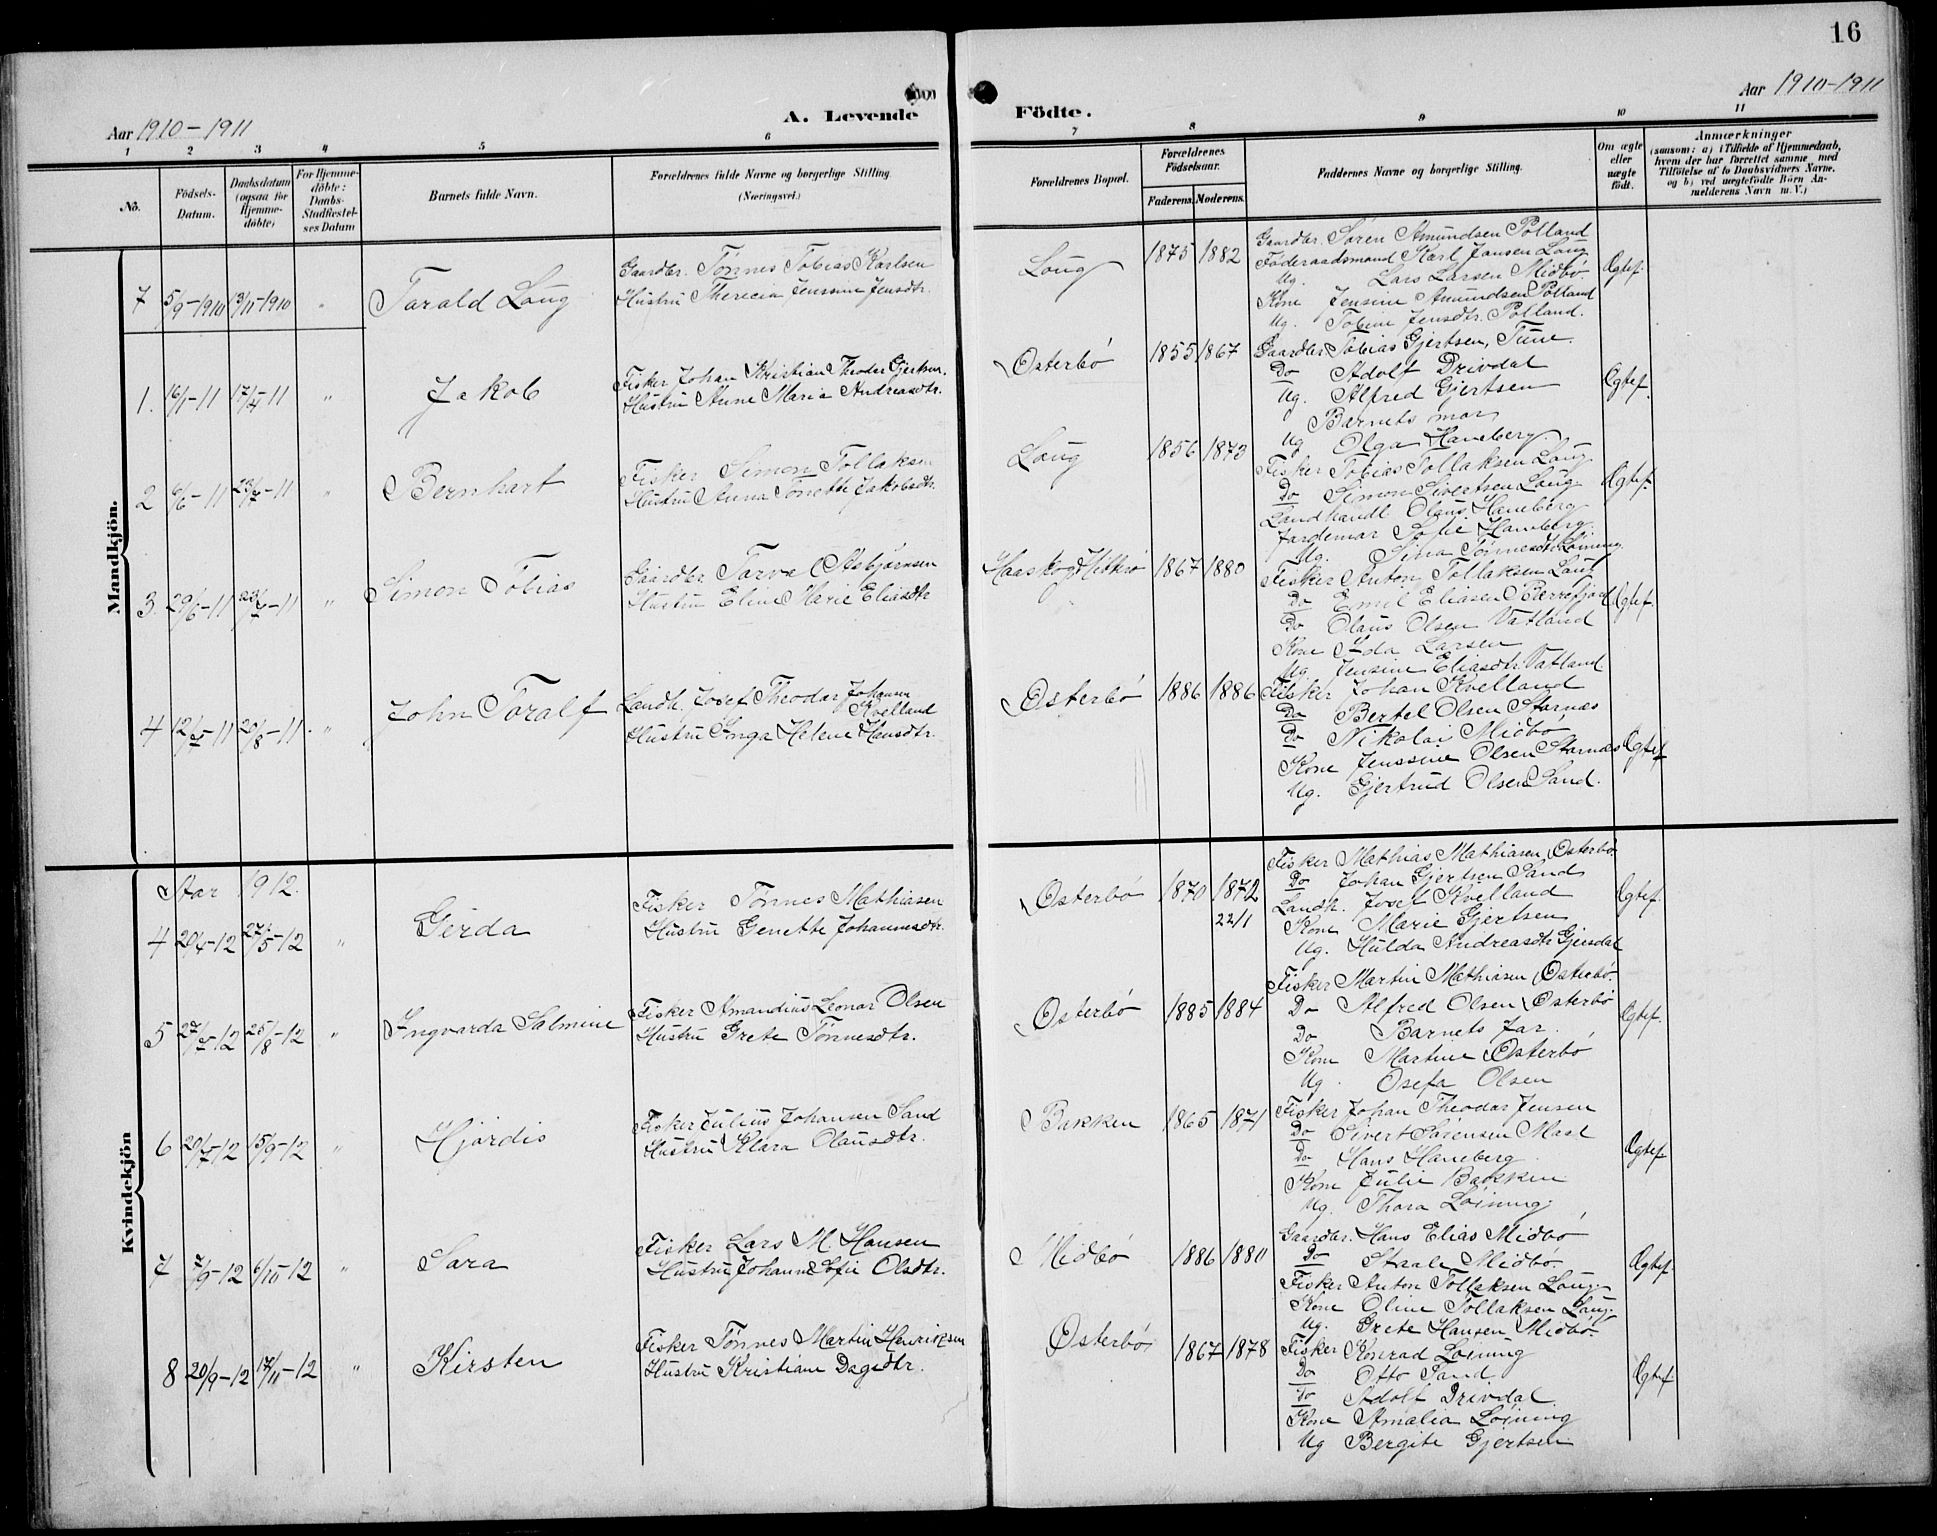 16
Aar 1910-1911
A. Levende Födte.
Aar 1910-1911
1 2 3 4 5 6 7 8 9 10 11
No.
Födsels-Datum.
Daabsdatum (ogsaa for Hjemmedöbte)
For Hjemmedöbte: Daabs-Stadfæstelses Datum
Barnets fulde Navn.
Forældrenes fulde Navne og borgerlige Stilling. (Næringsvei.)
Forældrenes Bopæl.
Forældrenes Födselsaar.
Faderens. Moderens.
Faddernes Navne og borgerlige Stilling.
Om ægte eller uægte födt.
Anmærkninger
(saasom: a) i Tilfælde af Hjemmedaab,
hvem der har forrettet samme med
Tilföielse af to Daabsvidners Navne,
og b) ved uægtefödte Börn An-
melderens Navn m. V.)
Mandkjön.
7 5/9-1910 13/11-1910 " Tarald Loug
Gaardbr. Tønnes Tobias Karlsen
Hustru Therecia Jenssine Jensdtr.
Loug 1875 1882
Gaardbr. Søren Amundsen Polland
Føderaadsmand Karl Jansen Loug
Ug. Lars Larsen Midbø
Kone Jensine Amundsen Polland
Ug. Tobine Jensdtr. Polland.
Ægtef.
1. 16/1-11 17/4-11 " Jakob
Fisker Johan Kristian Theodor Gjertsen.
Hustru Anne Maria Andreasdtr.
Østerbö 1855 1867
Gaardbr. Tobias Gjertsen, Tune.
Do Adolf Drivdal
Ug. Alfred Gjertsen
Barnets mor
Ug Olga Haneberg
Ægtef.
2 6/6-11 23/7-11 " Bernhart
Fisker Simon Tollaksen
Hustru Anna Tonette Jakobsdtr.
Loug 1856 1873
Fisker Tobias Tollaksen Loug
Do Simon Sivertsen Loug
Landhandl. Olaus Haneberg
Jordemor Sofie Haneberg.
Ug. Sina Tønnesdtr. Løining
Ægtef.
3 29/6-11 23/7-11 " Simon Tobias
Gaardbr Tarva Asbjørnsen
Hustru Eline Marie Eliasdtr
Haaskog Hitterø 1867 1880
Fisker Anton Tollaksen Loug
Do Emil Eliasen
Do Olaus Olsen Vatland
Kone Ida Larsen
Ug. Jensine Eliasdtr. Vatland
Ægtef.
4 12/7-11 20/8-11 " John Toralf
Landh. Josef Theodor Johansen Kvelland
Hustru Inga Helene Hansdtr.
Østerbö 1886 1886
Fisker Johan Kvelland
Do Bertel Olsen Starnæs
Do Nikolai Midbø
Kone Jenssine Olsen Starnæs
Ug. Gjertrud Olsen Sand.
Ægtef
Kvindekjön
Aar 1912.
4 20/4-12 27/5-12 " Gerda
Fisker Tönnes Mathiasen
Hustru Genette Johannesdtr.
Østerbö 1870 1872 22/1
Fisker Mathias Mathiasen Østerbö.
Do Johan Gjertsen Sand
Landh. Josef Kvelland
Kone Marie Gjertsen
Ug. Hulda Andreasdtr Gjersdal
Ægtef.
5 27/7-12 25/8-12 " Ingvarda Salmine
Fisker Amandius Leonar Olsen
Hustru Grete Tönnesdtr.
Østerbö 1885 1884
Fisker Martin Mathiasen Østerbö.
Do Alfred Olsen Østerbö
Do Barnets Far.
Kone Martine Østerbö
Ug. Osefa Olsen
Ægtef.
6 20/7-12 15/9-12 " Hjørdis
Fisker Julius Johansen Sand
Hustru Klara Olausdtr.
Bakken 1865 1871
Fisker Johan Theodor Jensen
Do Sivert Sørensen Maal
Do Hans Haneberg
Kone Julie Bakken
Ug. Thora Løining.
Ægtef
7 7/9-12 6/10-12 " Sara
Fisker Lars M. Hansen
Hustru Johanne Sofie Olsdtr.
Midbö 1886 1880
Gaardbr. Hans Elias Midbö
Do Staale Midbö.
Fisker Anton Tollaksen Loug.
Kone Oline Tollaksen Loug.
Ug. Grete Hansen Midbö.
Ægtef.
8 20/9-12 17/11-12 " Kirsten
Fisker Tønnes Martin Henriksen
Hustru Kristiane Dagsdtr.
Østerbö 1867 1878
Fisker Konrad Løining
Do Otto Sand
Do Adolf Drivdal.
Kone Amalia Løining
Ug Bergite Gjertsen.
Ægtef.